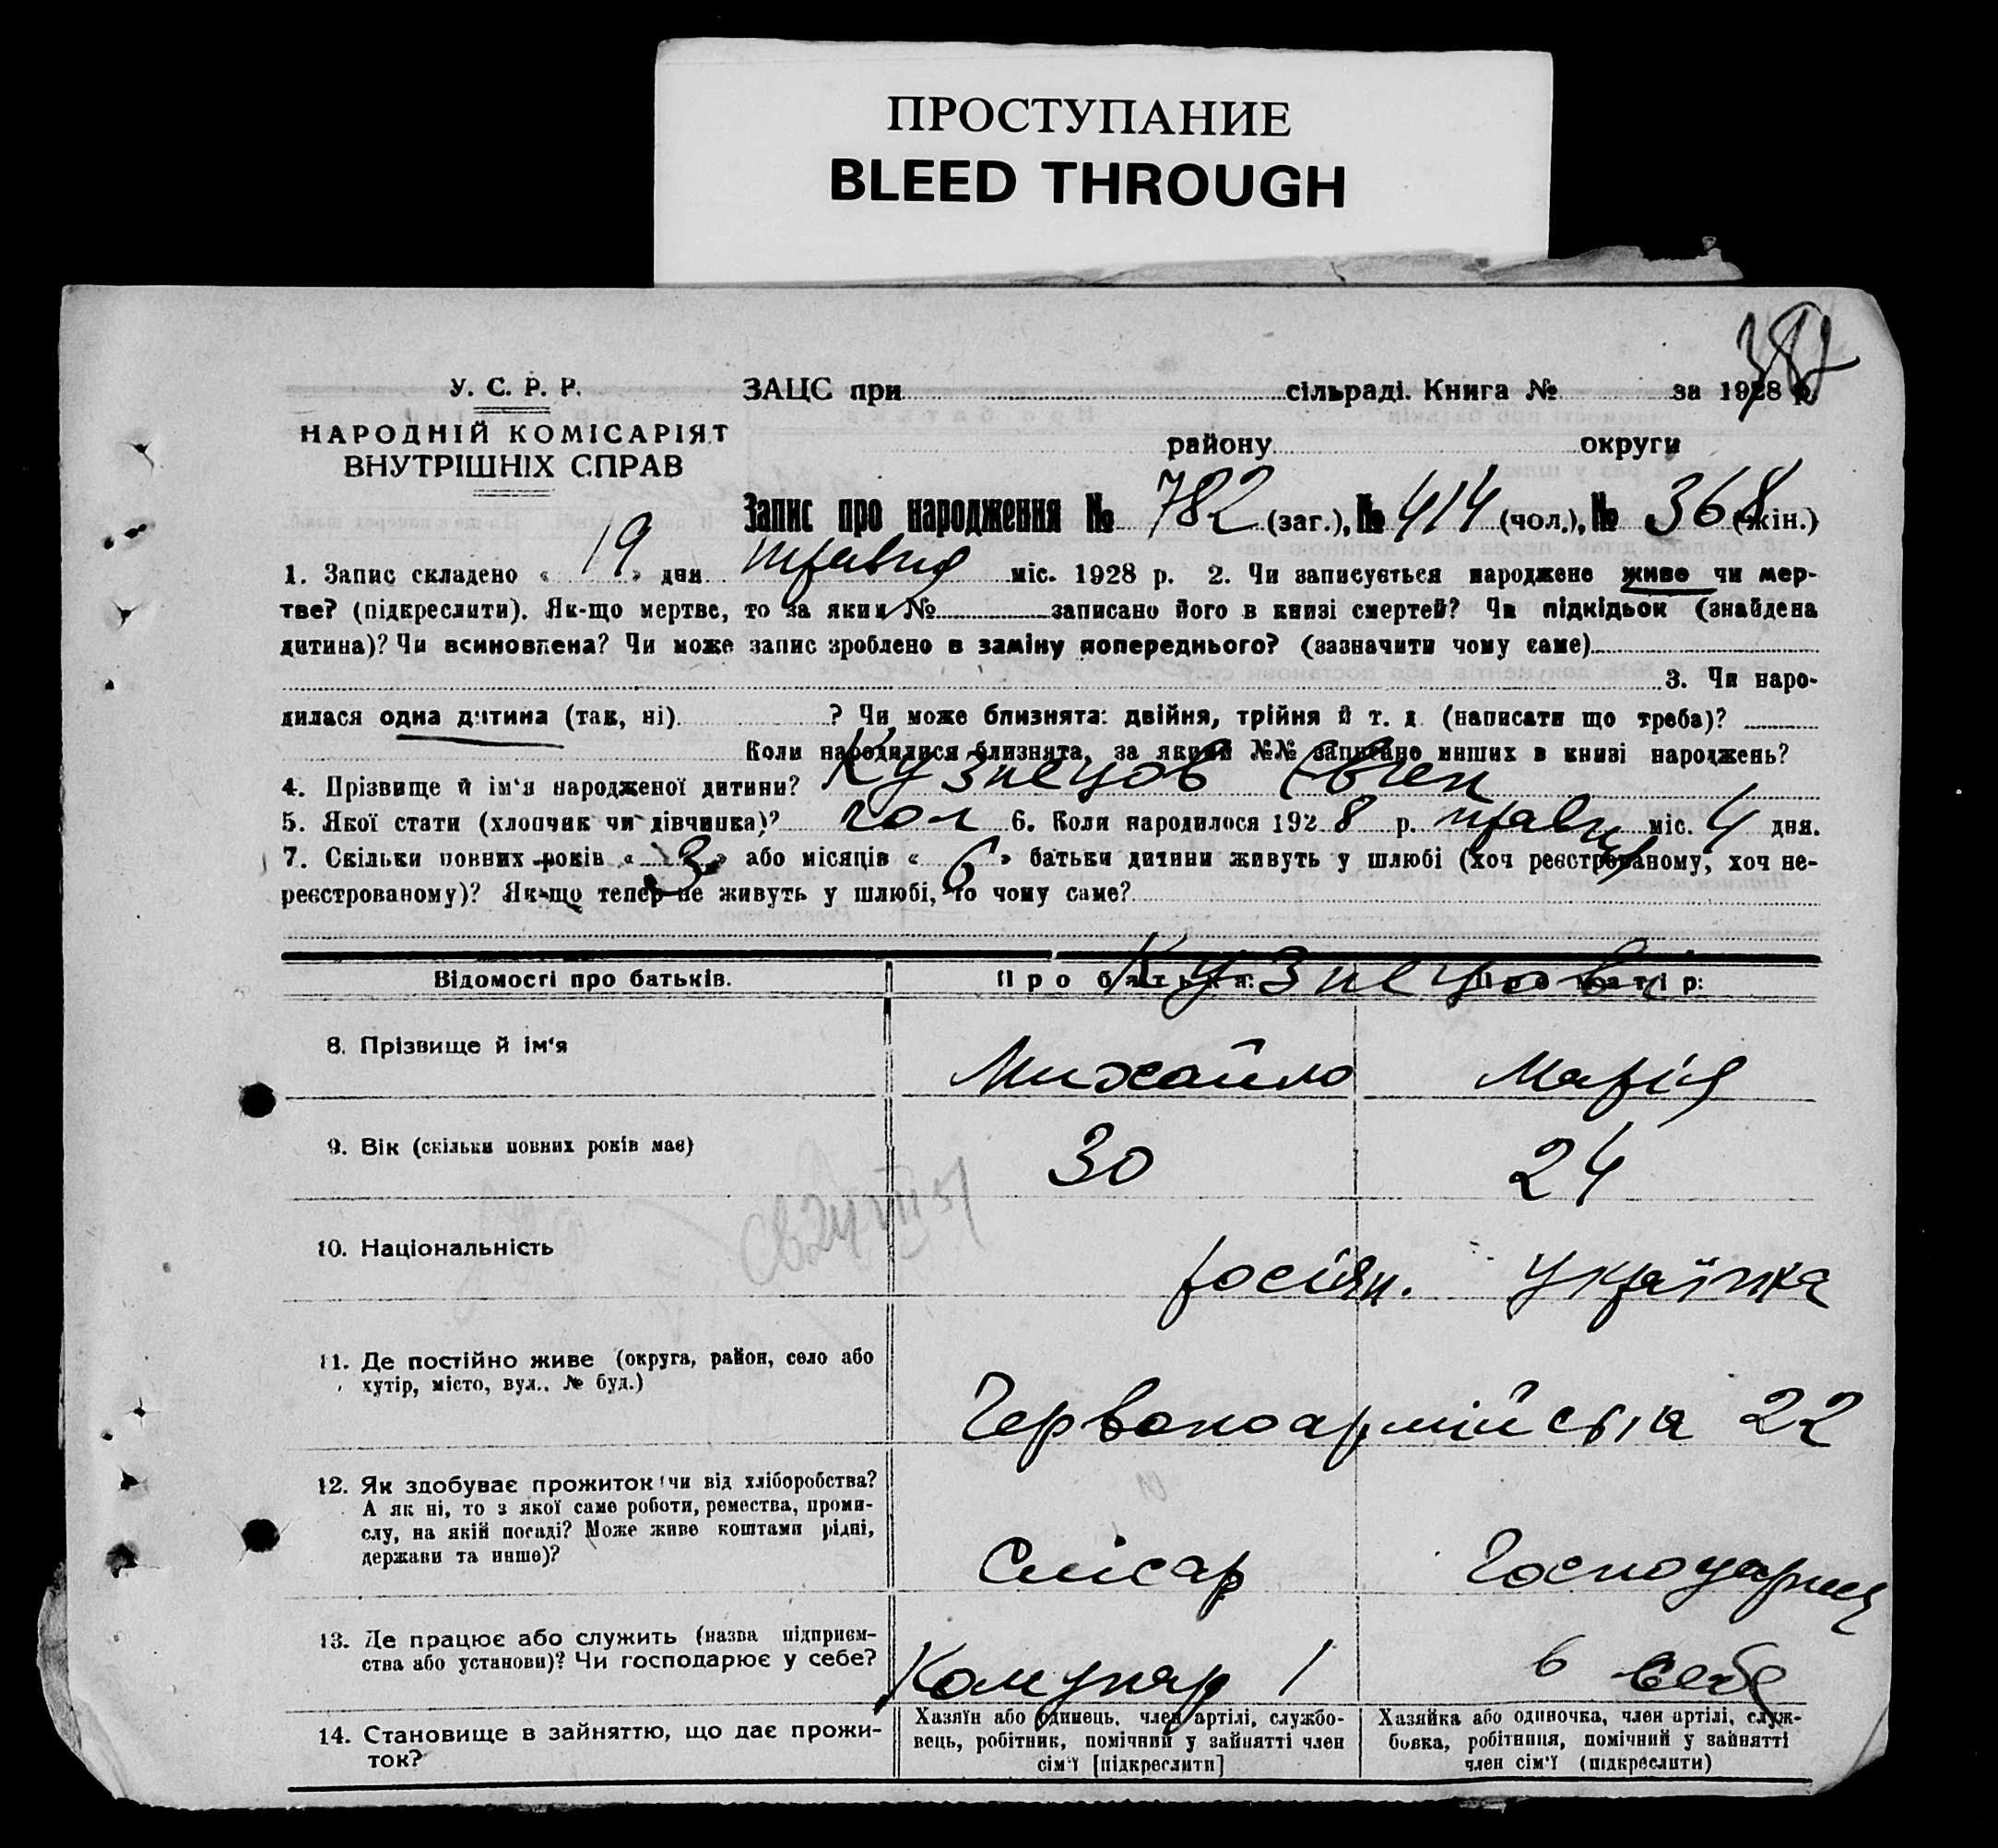 ПРОСТУПАНИЕ
BLEED THROUGH
387
У. С. Р. Р.
НАРОДНІЙ КОМІСАРІЯТ
ВНУТРІШНІХ СПРАВ
ЗАЦС при сільраді. Книга № за 1928 р.
району округи
Запис про народження № 782 (заг.), № 414 (чол.), № 368 (жін.)
1. Запис складено « 19 » дня травня міс. 1928 р. 2. Чи записується народжене живе чи мер-
тве? (підкреслити). Як-що мертве, то за яким № записано його в книзі смертей? Чи підкідьок (знайдена
дитина)? Чи всиновлена? Чи може запис зроблено в заміну попереднього? (зазначити чому саме)
3. Чи наро-
дилася одна дитина (так, ні) ? Чи може близнята: двійня, трійня й т. д. (написати що треба)?
Коли народилися близнята, за якими №№ записано инших в книзі народжень?
4. Прізвище й ім'я народженої дитини? Кузнецов Євген
5. Якої стати (хлопчик чи дівчинка)? чол 6. Коли народилося 1928 р. травня міс. 4 дня.
7. Скільки повних років « 3 » або місяців « 6 » батьки дитини живуть у шлюбі (хоч реєстрованому, хоч не-
реєстрованому)? Як-що тепер не живуть у шлюбі, то чому саме?
Кузнецови
Відомості про батьків. Про батька: Про матір:
8. Прізвище й ім'я Михайло Марія
9. Вік (скільки повних років має) 30 24
10. Національність росіян. Українка
11. Де постійно живе (округа, район, село або
хутір, місто, вул., № буд.) Червоноармійська 22
12. Як здобуває прожиток: чи від хліборобства?
А як ні, то з якої саме роботи, ремества, проми-
слу, на якій посаді? Може живе коштами рідні,
держави та инше)? Слюсар Господарює
13. Де працює або служить (назва підприєм-
ства або установи)? Чи господарює у себе? Комунар 1 в себе
14. Становище в зайняттю, що дає прожи-
ток?
Хазяїн або одинець, член артілі, службо-
вець, робітник, помічний у зайнятті член
сім'ї [підкреслити]
Хазяйка або одиночка, член артілі, служ-
бовка, робітниця, помічний у зайнятті
член сім'ї (підкреслити)